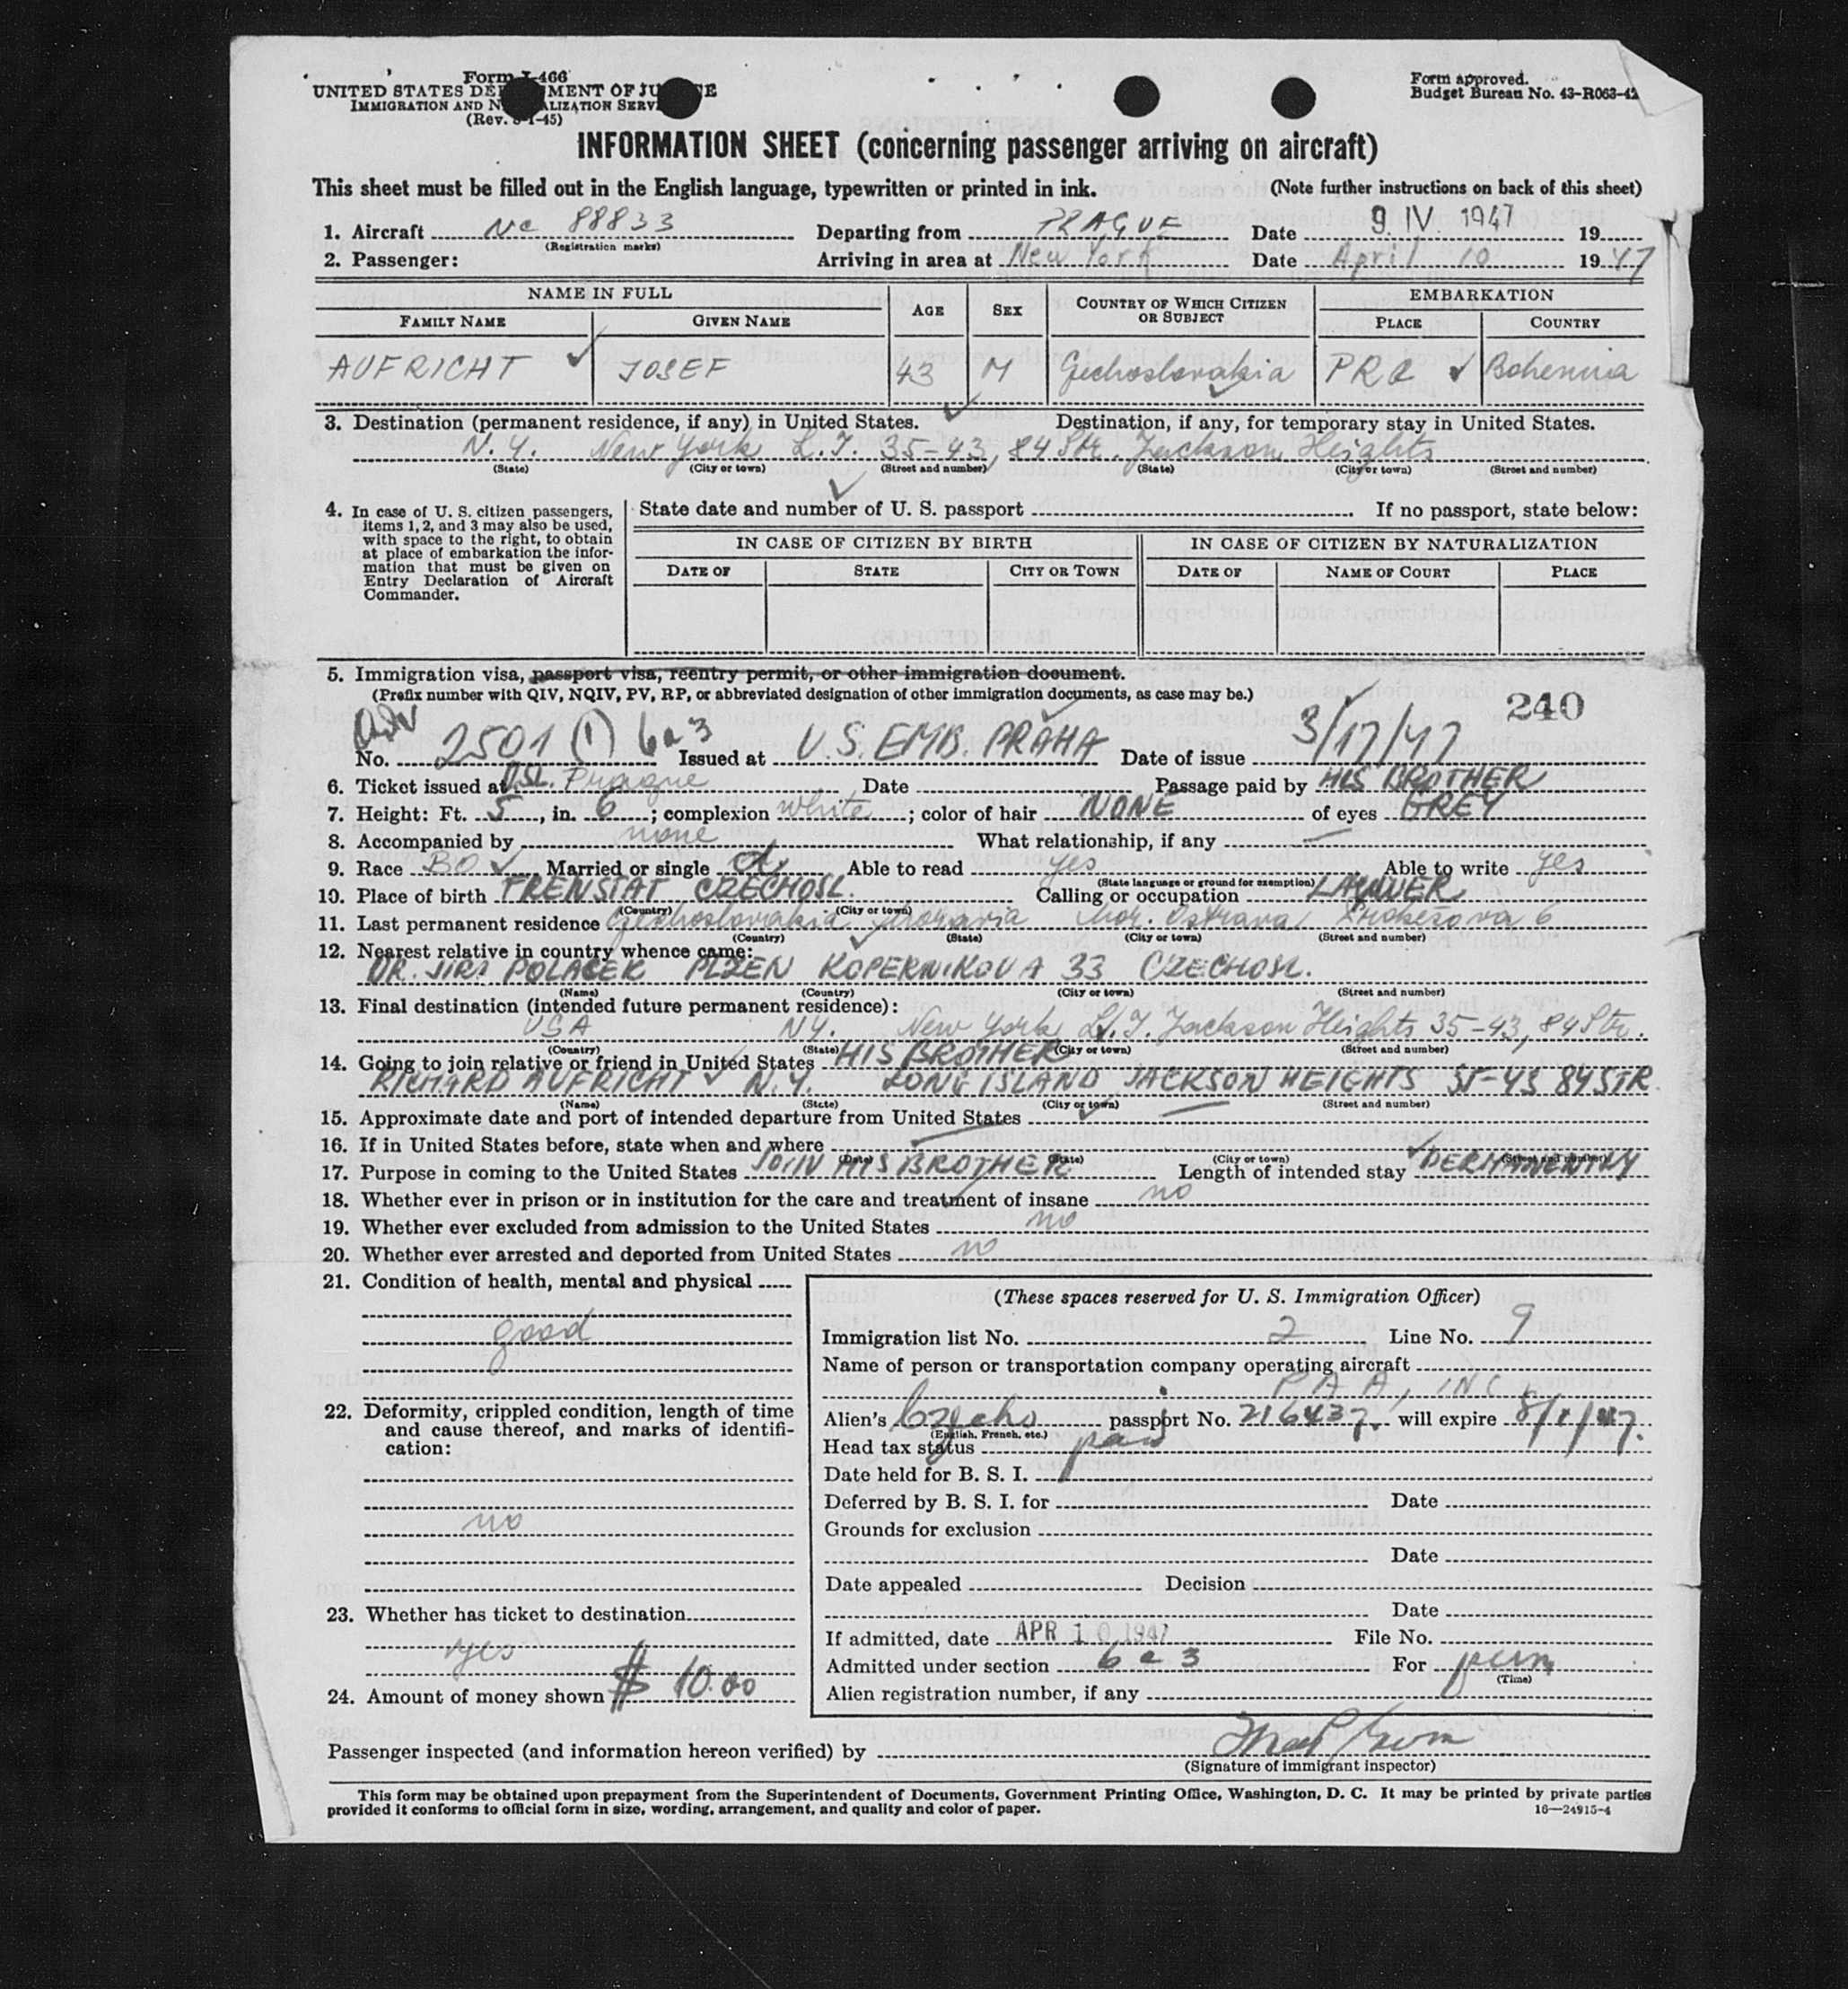 Form I-466
UNITED STATES DEPARTMENT OF JUSTICE
IMMIGRATION AND NATURALIZATION SERVICE
(Rev. -1-45)
Form approved.
Budget Bureau No. 43-R063-42
INFORMATION SHEET (concerning passenger arriving on aircraft)
This sheet must be filled out in the English language, typewritten or printed in ink. (Note further instructions on back of this sheet)
1. Aircraft NC 88833 Departing from PRAGUE Date 9. IV. 1947 19
(Registration marks)
2. Passenger: Arriving in area at New York Date April 10 1947
NAME IN FULL AGE SEX COUNTRY OF WHICH CITIZEN OR SUBJECT EMBARKATION
FAMILY NAME GIVEN NAME PLACE COUNTRY
AUFRICHT JOSEF 43 M Czechoslovakia PRG Bohemia
3. Destination (permanent residence, if any) in United States. Destination, if any, for temporary stay in United States.
N.Y. New York L.I. 35-43, 84 Str. Jackson Heights
(State) (City or town) (Street and number) (State) (City or town) (Street and number)
4. In case of U. S. citizen passengers, items 1, 2, and 3 may also be used, with space to the right, to obtain at place of embarkation the information that must be given on Entry Declaration of Aircraft Commander.
State date and number of U. S. passport If no passport, state below:
IN CASE OF CITIZEN BY BIRTH IN CASE OF CITIZEN BY NATURALIZATION
DATE OF STATE CITY OR TOWN DATE OF NAME OF COURT PLACE
5. Immigration visa, passport visa, reentry permit, or other immigration document.
(Prefix number with QIV, NQIV, PV, RP, or abbreviated designation of other immigration documents, as case may be.)
240
QIV
No. 2501 (1) 6a3 Issued at U.S. EMB. PRAHA Date of issue 3/17/47
6. Ticket issued at Prague Date Passage paid by HIS BROTHER
7. Height: Ft. 5, in. 6; complexion white; color of hair NONE of eyes GREY
8. Accompanied by none What relationship, if any —
9. Race BO Married or single Able to read yes Able to write yes
(State language or ground for exemption)
10. Place of birth FRENSTAT CZECHOSL. Calling or occupation LAWYER
(Country) (City or town)
11. Last permanent residence Czechoslovakia Moravia Mor. Ostrava 6
(Country) (State) (City or town) (Street and number)
12. Nearest relative in country whence came:
DR. JIRI POLACEK PLZEN KOPERNIKOVA 33 CZECHOSL.
(Name) (Country) (City or town) (Street and number)
13. Final destination (intended future permanent residence):
USA NY. New York L.I. Jackson Heights 35-43, 84 Str.
(Country) (State) (City or town) (Street and number)
14. Going to join relative or friend in United States HIS BROTHER
RICHARD AUFRICHT N.Y. LONG ISLAND JACKSON HEIGHTS 35-43 84 STR
(Name) (State) (City or town) (Street and number)
15. Approximate date and port of intended departure from United States —
16. If in United States before, state when and where —
(Date) (State) (City or town) (Street and number)
17. Purpose in coming to the United States JOIN HIS BROTHER Length of intended stay PERMANENTLY
18. Whether ever in prison or in institution for the care and treatment of insane no
19. Whether ever excluded from admission to the United States no
20. Whether ever arrested and deported from United States no
21. Condition of health, mental and physical
good
22. Deformity, crippled condition, length of time and cause thereof, and marks of identification:
no
23. Whether has ticket to destination
yes
24. Amount of money shown $ 10.00
(These spaces reserved for U. S. Immigration Officer)
Immigration list No. 2 Line No. 9
Name of person or transportation company operating aircraft
P A A, INC.
Alien's Czecho passport No. 216437. will expire 8/1/47.
(English, French, etc.)
Head tax status paid
Date held for B. S. I.
Deferred by B. S. I. for Date
Grounds for exclusion
Date
Date appealed Decision
Date
If admitted, date APR 10 1947 File No.
Admitted under section 6 a 3 For perm
(Time)
Alien registration number, if any
Passenger inspected (and information hereon verified) by
(Signature of immigrant inspector)
This form may be obtained upon prepayment from the Superintendent of Documents, Government Printing Office, Washington, D. C. It may be printed by private parties
provided it conforms to official form in size, wording, arrangement, and quality and color of paper.
16—24915-4